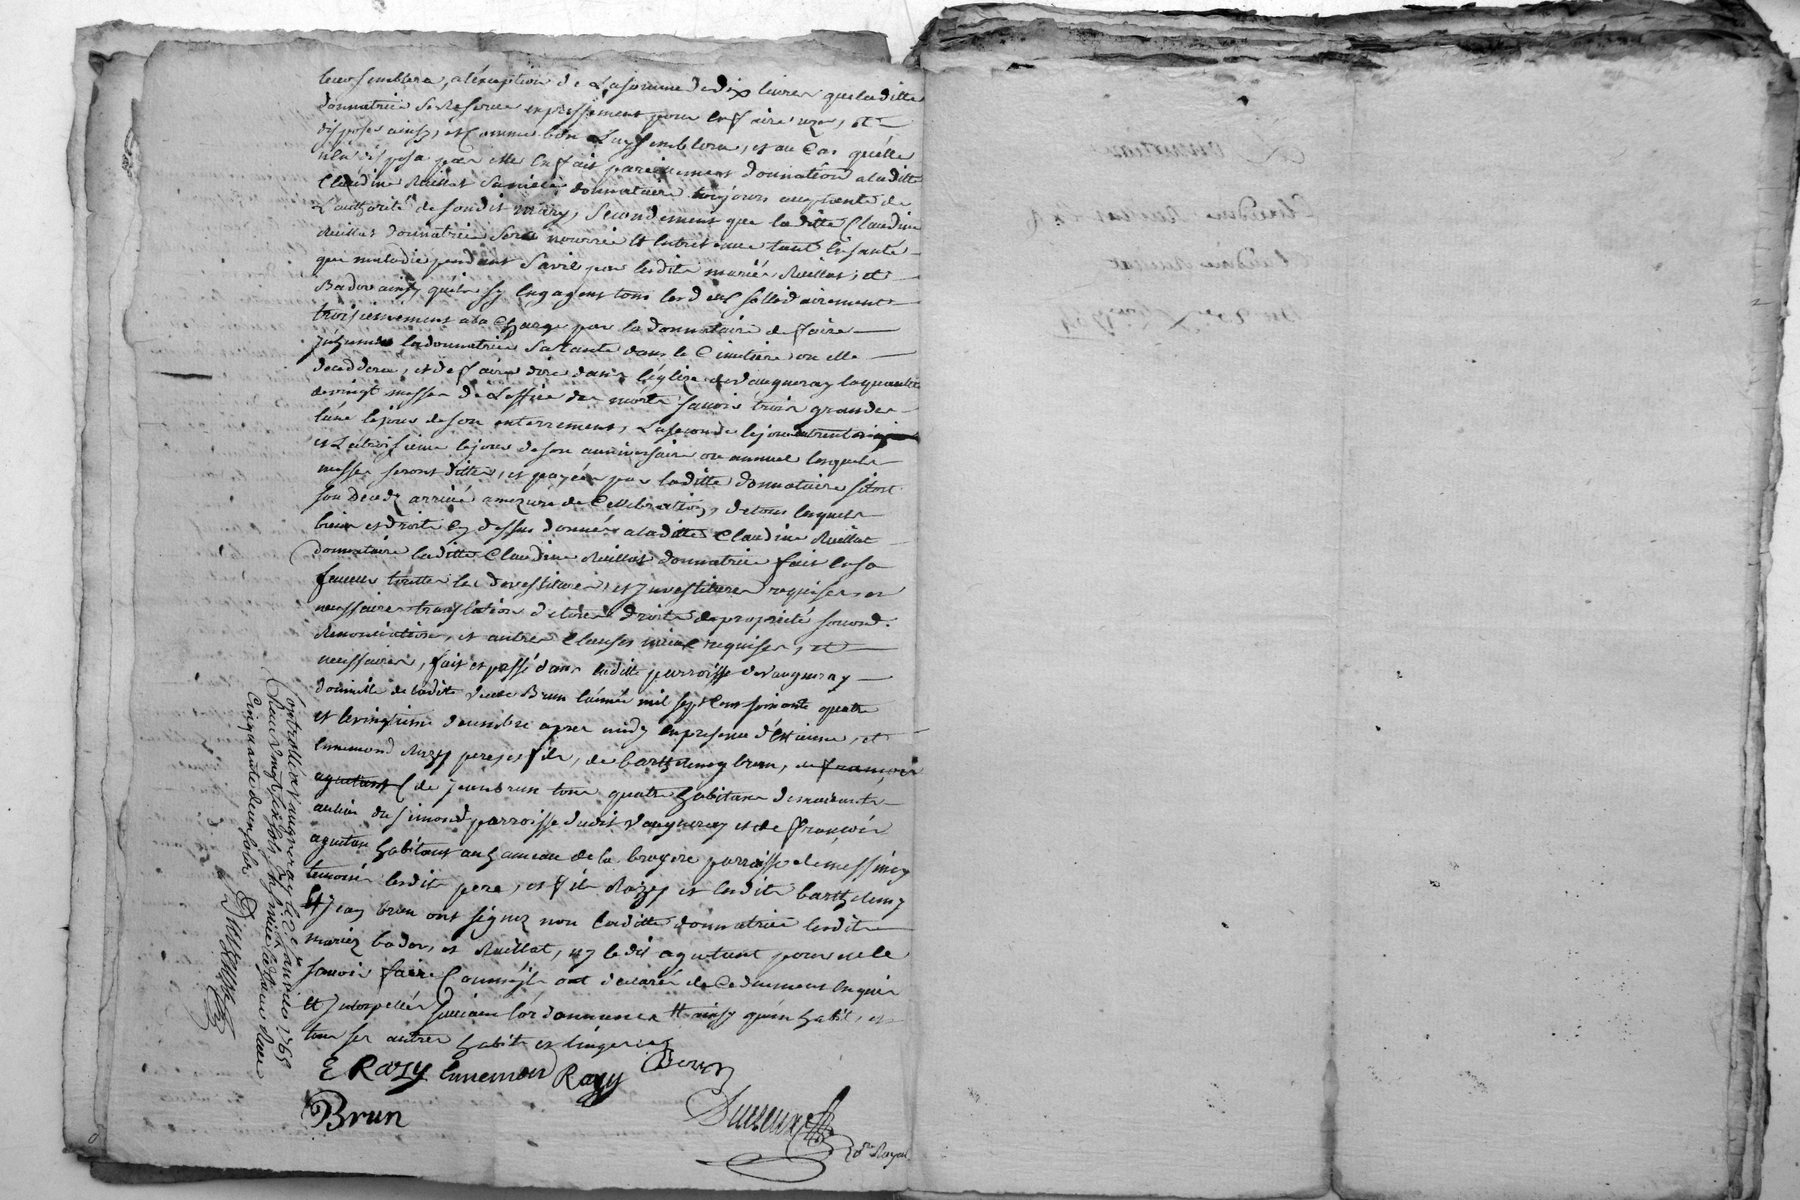 luy semblera, a l'exeption de La somme de dix livres que laditte
donnatrice se Reserve expressement pour en faire uzer, et
disposer ainsy, et Comme bon Luy semblera, et au Cas quelle
n'en disposa par elle en fait pareillement donnation a laditte
Claudine Ruillat sa niéce donnataire toujours acceptante de
L'authorité de son dit mary, Secondement que laditte Claudine
Ruillat donnatrice sera nourrie et Entretenue tant En santé
que maladie pendant sa vie par lesdits mariés Ruillat, et
Bador ainsy qu'ils sy Engagent tous les deux sollidairement
troisiemement a la Charge par la donnataire de faire
Inhumer la donnatrice sa tante dans le Cimetière ou elle
deceddera, et de faire dire dans l'église de Vaugneray la quantité
de vingt messes de L'office des morts savoir trois grandes
l'une le jour de son enterrement, La seconde le jour
et La troisieme le jour de son anniversaire ou annuel lesquelles
messes seront dittes, et payées par laditte donnataire sitost
son Decedz arrivé amezure de Cellebration, de tous lesquels
biens et droits Cy dessus donnés a laditte Claudine Ruillat
donnataire laditte Claudine Ruillat donnatrice fait en sa
faveur touttes les devestitures, et Investitures requises et
nessaires translation d'iture droits de proprieté
Renonciation, et autres Clauses mieux requises, et
nessaires, fait et passé dans laditte parroisse de Vaugneray
domicille de ladite veuve Brun l'année mil sept Cent soixante quatre
et le vingtieme decembre apres midy En presence d'Estienne, et
Ennemond Razy pere et fils, de barthelemy brun, de françois
aguetant et de jean brun tous quatre habitans demeurants
au lieu du simond parroisse dudit Vaugneray et de François
aguetan habitant au hameau de la bruyere parroisse de messimy
temoins lesdits pere, et fils Razy et lesdits barthelemy
et Jean brun ont signez non laditte donnatrice lesdits
mariez bador, et Ruillat, ny ledit aguetant pour ne le
savoir faire Comme ils ont declarés de Ce duement Enquis
et Interpellés suivant l'ordonnance # ainsy qu'un habit, et
tous ses autres habits et lingeries
E RAZY Ennemon RAzy Brun
Brun
Royal
Controllé a Vaugneray le 2e Janvier 1765
Cinquante deux sols